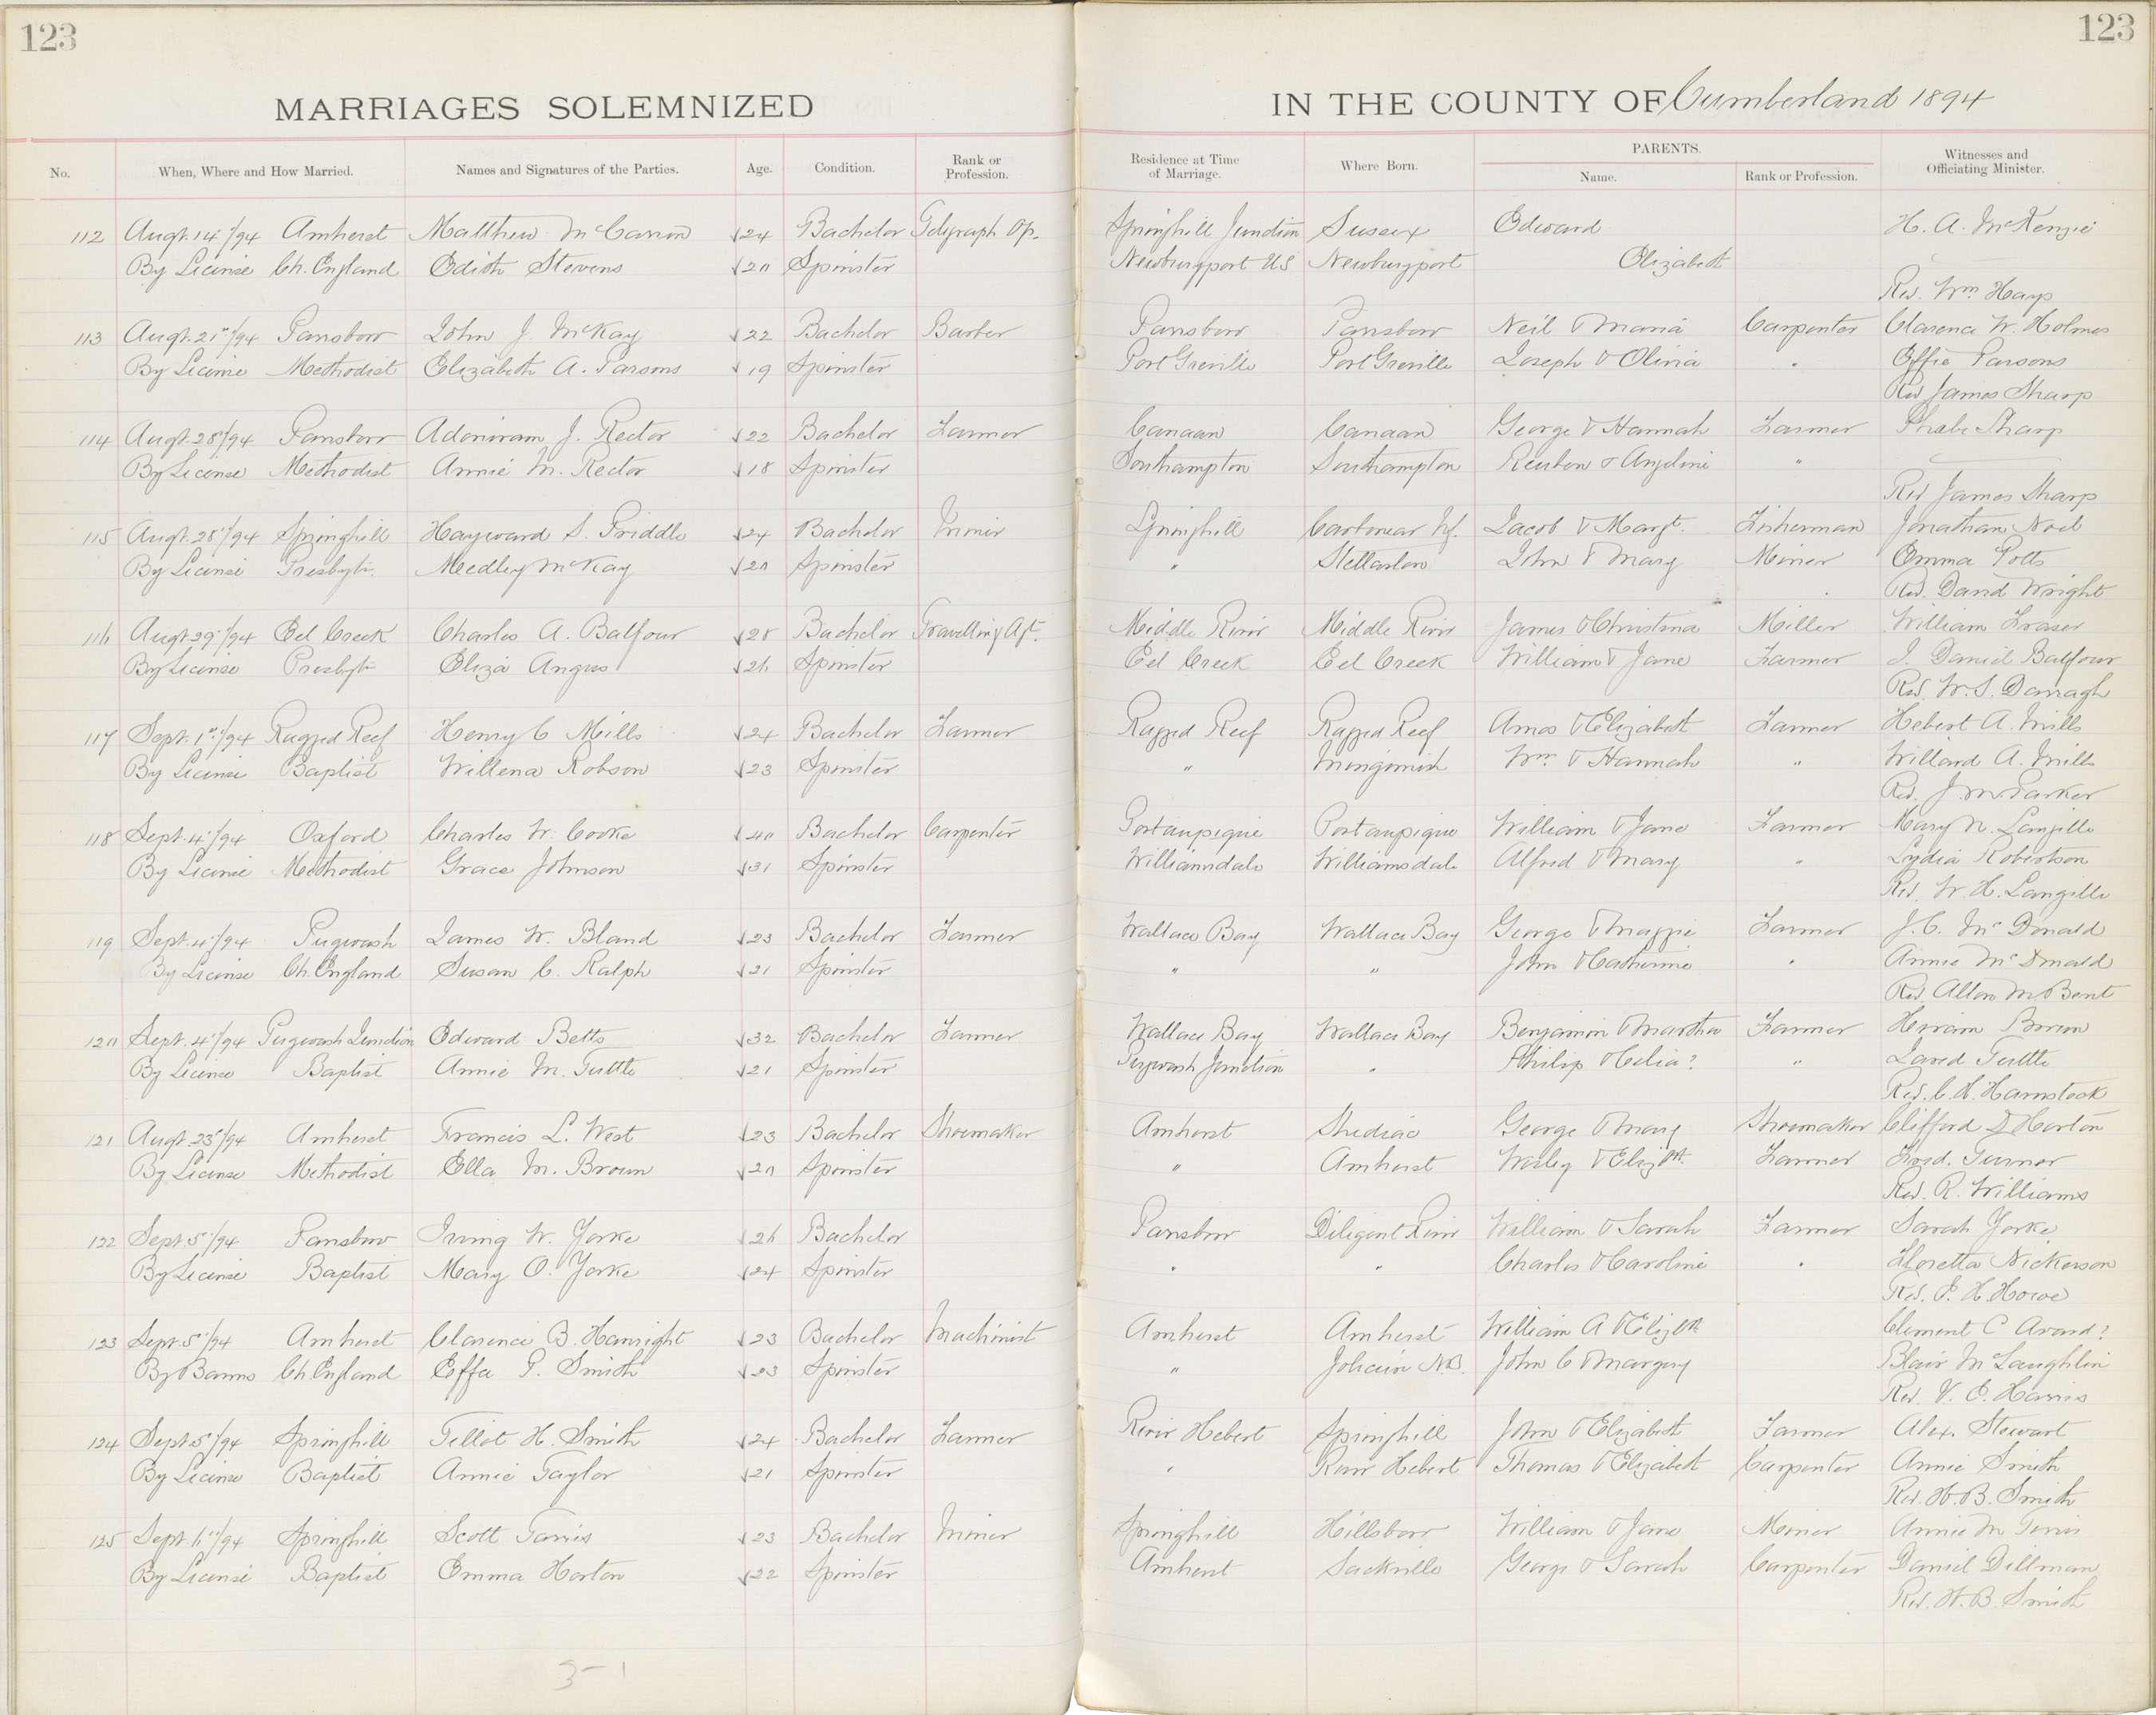 123
123
MARRIAGES SOLEMNIZED IN THE COUNTY OF Cumberland 1894
No. When, Where and How Married. Names and Signatures of the Parties. Age. Condition. Rank or Profession. Residence at Time of Marriage. Where Born. PARENTS. Name. Rank or Profession. Witnesses and Officiating Minister.
112 Augt. 14"/94 Amherst Matthew McCarron 24 Bachelor Telegraph Op. Springhill Junction Sussex Edward H. A. McKenzie
By License Ch. England Edith Stevens 20 Spinster Newburyport US Newburyport Elizabeth
Rev. Wm Harp
113 Augt. 21st/94 Parrsboro John J. McKay 22 Bachelor Barber Parrsboro Parrsboro Neil & Maria Carpenter Clarence W. Holmes
By License Methodist Elizabeth A. Parsons 19 Spinster Port Greville Port Greville Joseph & Olivia " Effie Parsons
Rev James Sharp
114 Augt. 28"/94 Parrsboro Adoniram J. Rector 22 Bachelor Farmer Canaan Canaan George & Hannah Farmer Phebe Sharp
By License Methodist Annie M. Rector 18 Spinster Southampton Southampton Reuben & Angeline "
Rev James Sharp
115 Augt. 28"/94 Springhill Hayward S. Priddle 24 Bachelor Miner Springhill Carbonear Nf. Jacob & Margt. Fisherman Jonathan Noel
By License Presbytn. Medley McKay 20 Spinster " Stellarton John & Mary Miner Emma Potts
Rev. David Wright
116 Augt. 29"/94 Eel Creek Charles A. Balfour 28 Bachelor Travelling Agt. Middle River Middle River James & Christina Miller William Fraser
By License Presbytn Eliza Angus 26 Spinster Eel Creek Eel Creek William & Jane Farmer J. Daniel Balfour
Rev. W. S. Darragh
117 Sept. 1st/94 Ragged Reef Henry C Mills 24 Bachelor Farmer Ragged Reef Ragged Reef Amos & Elizabeth Farmer Hebert A. Mills
By License Baptist Willena Robson 23 Spinster " Wm & Hannah " Willard A. Mills
Rev. J. M. Parker
118 Sept. 4"/94 Oxford Charles W. Cooke 40 Bachelor Carpenter Portaupique Portaupique William & Jane Farmer Mary N. Langille
By License Methodist Grace Johnson 31 Spinster Williamsdale Williamsdale Alfred & Mary " Lydia Robertson
Rev. W. H. Langille
119 Sept. 4"/94 Pugwash James W. Bland 23 Bachelor Farmer Wallace Bay Wallace Bay George & Maggie Farmer J. C. McDonald
By License Ch. England Susan C. Ralph 21 Spinster " " John & Catherine " Annie McDonald
Rev. Allan M Bent
120 Sept. 4"/94 Pugwash Junction Edward Betts 32 Bachelor Farmer Wallace Bay Wallace Bay Benjamin & Martha Farmer Hiriam Brown
By License Baptist Annie M. Tuttle 21 Spinster Pugwash Junction " Philip & Celia? " Jared Tuttle
Rev. C. H. Harnstock
121 Augt. 23"/94 Amherst Francis L. West 23 Bachelor Shoemaker Amherst Shediac George & Mary Shoemaker Clifford D Horton
By License Methodist Ella M. Brown 20 Spinster " Amherst Wesley & Elizbth. Farmer Fred. Turner
Rev. R. Williams
122 Sept. 5"/94 Parrsboro Irving W. Yorke 26 Bachelor Parrsboro Diligent River William & Sarah Farmer Sarah Yorke
By License Baptist Mary O. Yorke 24 Spinster " " Charles & Caroline " Floretta Nickerson
Rev. E. H. Howe
123 Sept. 5"/94 Amherst Clarence B. Hanright 23 Bachelor Machinist Amherst Amherst William A & Elizbth. Clement C Avard?
By Banns Ch. England Effa P. Smith 23 Spinster " Jolicure N.B. John C & Margery Blair McLaughlin
Rev. V. E. Harris
124 Sept. 5"/94 Springhill Tillot H. Smith 24 Bachelor Farmer River Hebert Springhill John & Elizabeth Farmer Alex. Stewart
By License Baptist Annie Taylor 21 Spinster " River Hebert Thomas & Elizabeth Carpenter Annie Smith
Rev. H. B. Smith
125 Sept. 6"/94 Springhill Scott Tarris 23 Bachelor Miner Springhill Hillsboro William & Jane Miner Annie M
By License Baptist Emma Horton 22 Spinster Amherst Sackville George & Sarah Carpenter Daniel Dillman
Rev. H. B. Smith
3-1